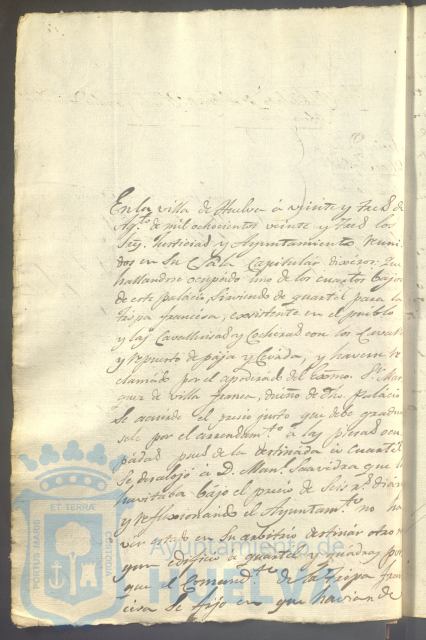 En la villa de Huelva à veinte y tres de
Ag.to de mil ochocientos veinte y tres los
Sres. Justicias y Ayuntamiento reuni
dos en su Sala Capitular dixeron: Que
hallandose ocupado uno de los cuartos bajos
de este palacio, sirviendo de quartel para la
tropa francesa, existente en el pueblo
y las Cavallerisas y Cocheras con los Cavall
y repuesto de paja y cevada, y haverse re
clamado por el apoderado del Exmo. Sr. Mar
quez de villa franca, dueño de dho. Palacio
se acuerde el precio justo que debe gradua
sele por el arrendam.to à las piezas ocu
padas pues de la destinada à cuartel
se desalojó à D. Man. Saavedra que la
havitaba bajo el precio de seis rs. diar
y reflexionando el Ayuntam.to no ha
ver estado en su arbitrio destinar otro
qun edificio à quartel y quadra, por
que el Comand.te de la tropa fran
cesa se fijo en que havian de
PORTUS MARIS
ET TERRÆ
CUSTODIA
Ayuntamiento de
HUELVA